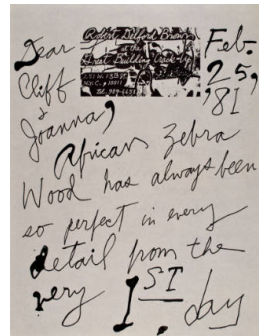 Dear
Cliff
&
Joanna,
Robert Delford Brown
at the
Great Building Crack-up
251 W. 13th St.
N.Y.C. 10011
Feb.
25,
'81
African Zebra
Wood has always been
so perfect in every
detail from the
very 1ST day